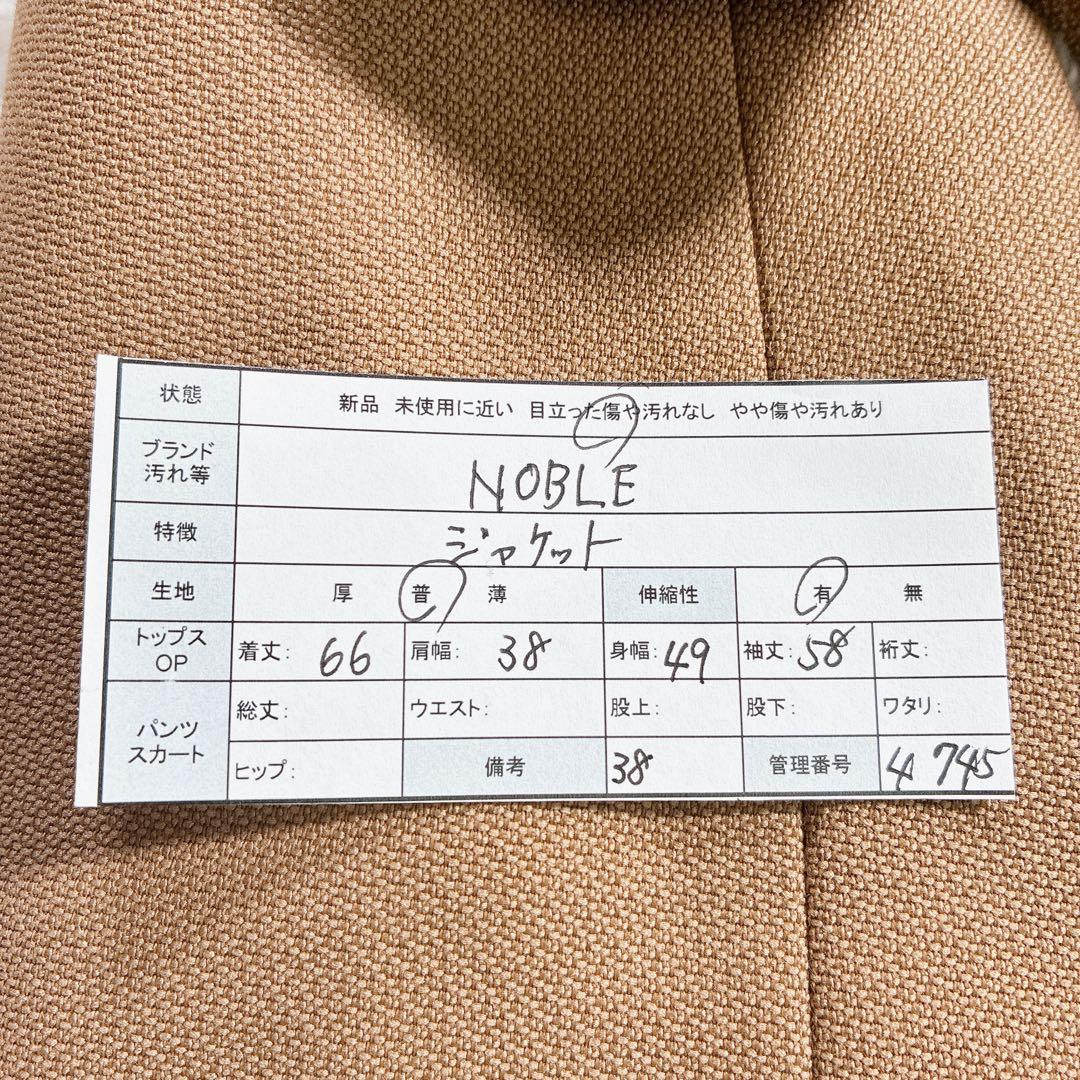 状態 新品 未使用に近い 目立った傷や汚れなし やや傷や汚れあり
ブランド
汚れ等 NOBLE
特徴 ジャケット
生地 厚 普 薄 伸縮性 有 無
トップス
OP 着丈: 66 肩幅: 38 身幅: 49 袖丈: 58 裄丈:
パンツ
スカート 総丈: ウエスト: 股上: 股下: ワタリ:
ヒップ: 備考 38 管理番号 4 745